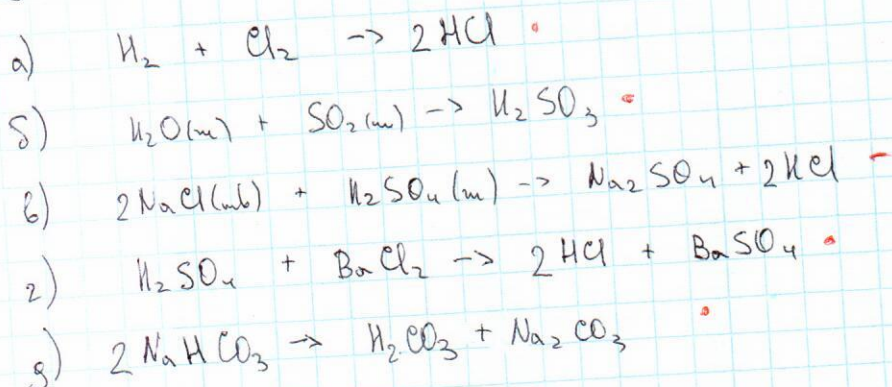 а) H₂ + Cl₂ -> 2HCl
б) H₂O(ж) + SO₂(ж) -> H₂SO₃
в) 2NaCl(тв) + H₂SO₄(ж) -> Na₂SO₄ + 2HCl
г) H₂SO₄ + BaCl₂ -> 2HCl + BaSO₄
д) 2NaHCO₃ -> H₂CO₃ + Na₂CO₃